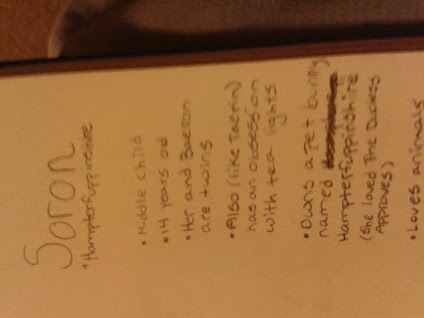 Soron
+ Hampterfuppinshire
• Middle child
• 14 years old
• Her and Baeron
are twins
• Also (like Taerin)
has an obsession
with tea lights
• Owns a pet bunny
named
Hampterfuppinshire
(She loved The Duchess
Approves)
• Loves animals